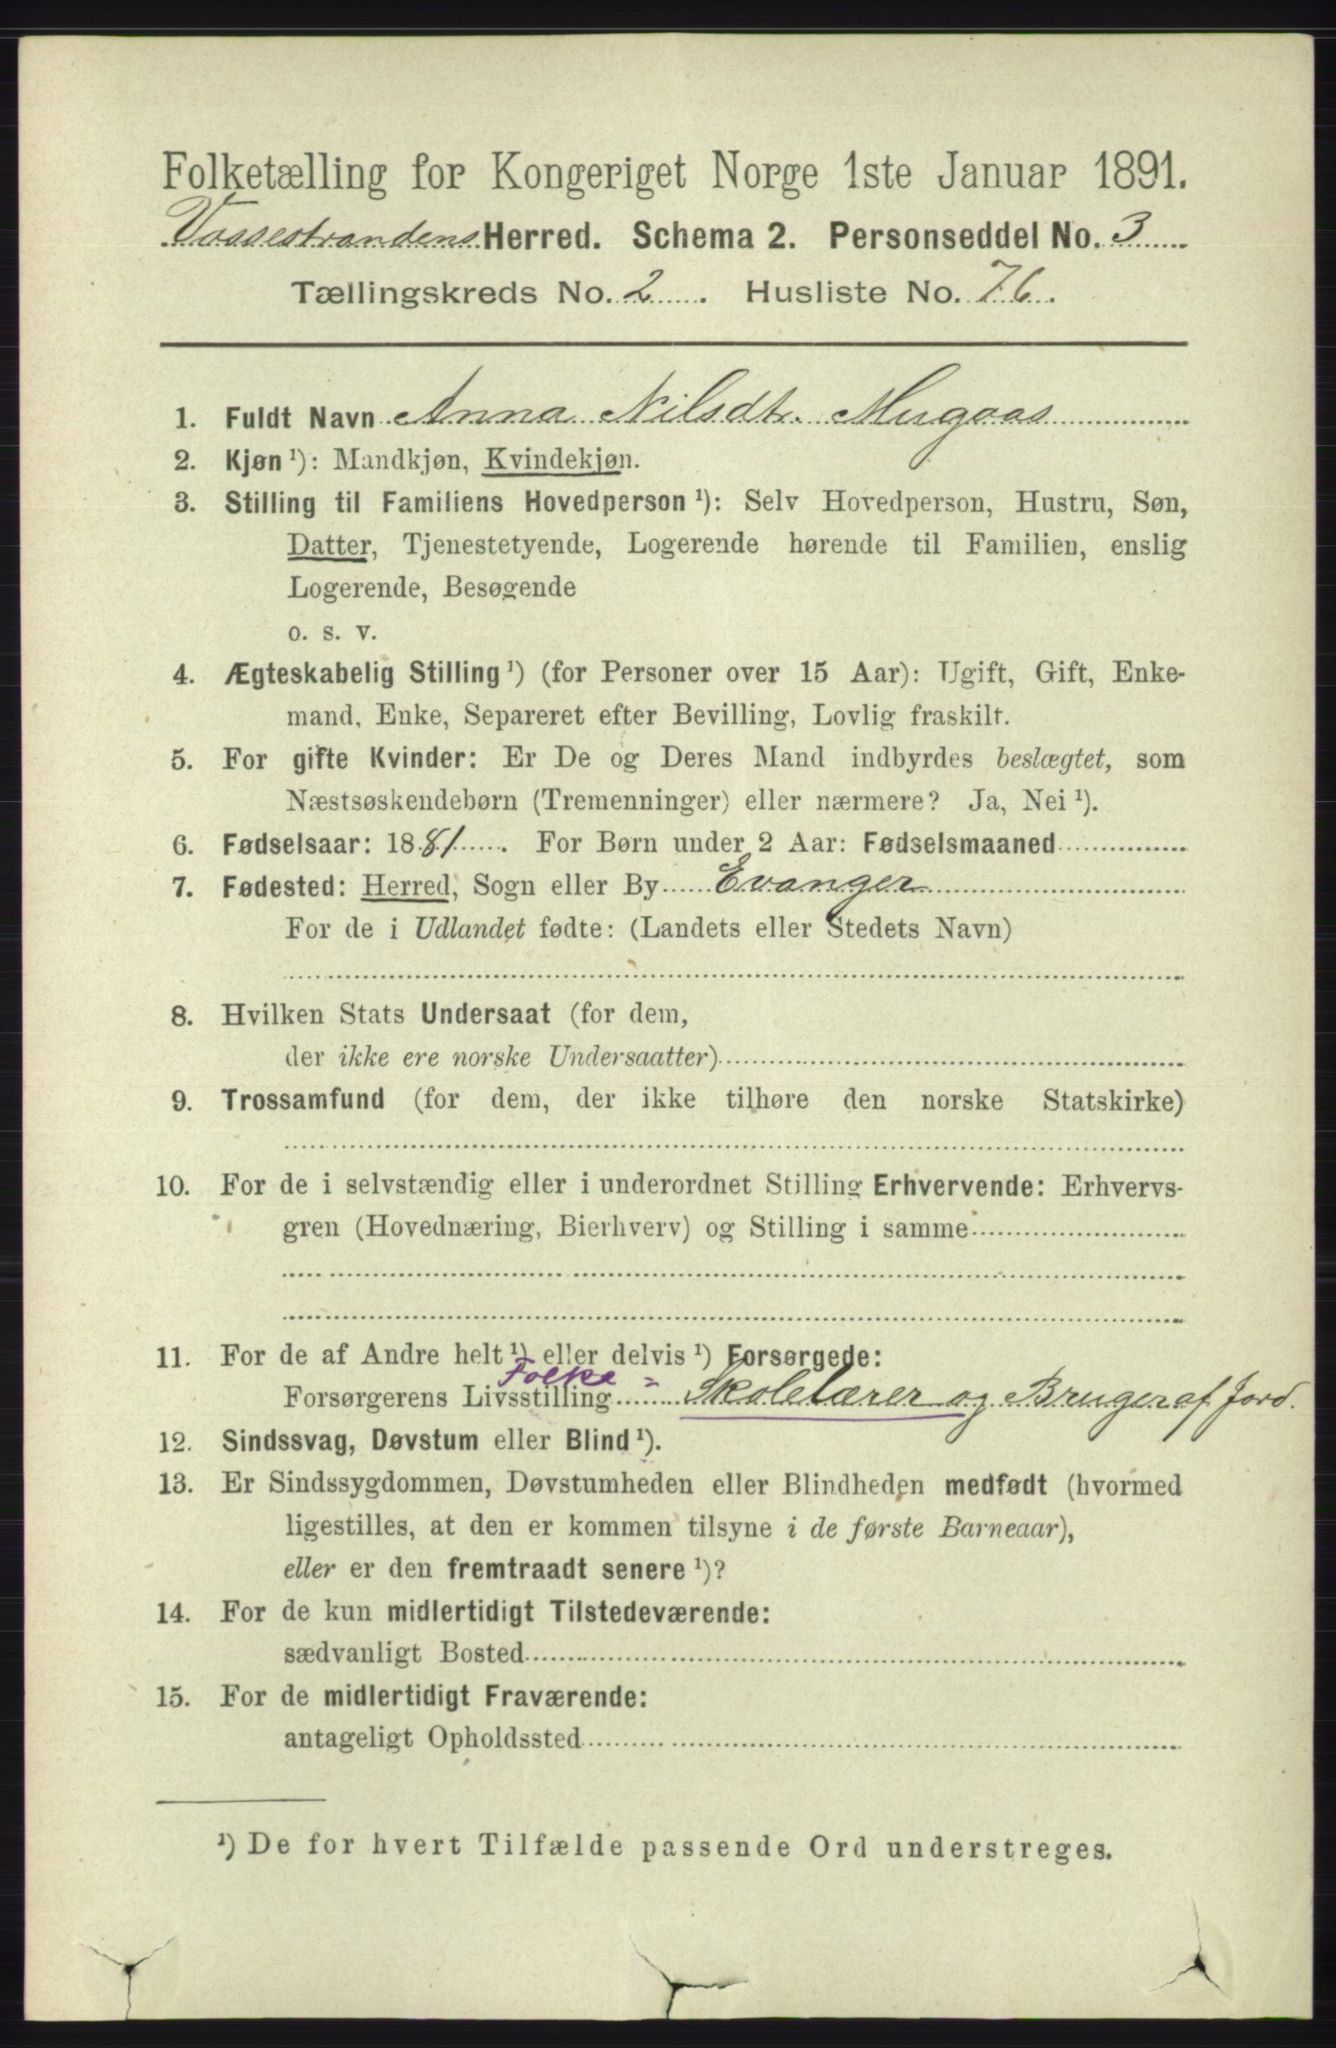 Folketælling for Kongeriget Norge 1ste Januar 1891.
Vossestrandens Herred. Schema 2. Personseddel No. 3
Tællingskreds No. 2. Husliste No. 76.
1. Fuldt Navn Anna Nilsdtr. Mugaas
2. Kjøn ¹): Mandkjøn, Kvindekjøn.
3. Stilling til Familiens Hovedperson ¹): Selv Hovedperson, Hustru, Søn,
Datter, Tjenestetyende, Logerende hørende til Familien, enslig
Logerende, Besøgende
o. s. v.
4. Ægteskabelig Stilling ¹) (for Personer over 15 Aar): Ugift, Gift, Enke-
mand, Enke, Separeret efter Bevilling, Lovlig fraskilt.
5. For gifte Kvinder: Er De og Deres Mand indbyrdes beslægtet, som
Næstsøskendebørn (Tremenninger) eller nærmere? Ja, Nei ¹).
6. Fødselsaar: 1881. For Børn under 2 Aar: Fødselsmaaned
7. Fødested: Herred, Sogn eller By Evanger
For de i Udlandet fødte: (Landets eller Stedets Navn)
8. Hvilken Stats Undersaat (for dem,
der ikke ere norske Undersaatter)
9. Trossamfund (for dem, der ikke tilhøre den norske Statskirke)
10. For de i selvstændig eller i underordnet Stilling Erhvervende: Erhvervs-
gren (Hovednæring, Bierhverv) og Stilling i samme
11. For de af Andre helt ¹) eller delvis ¹) Forsørgede:
Folke-
Forsørgerens Livsstilling Skolelærer og Bruger af Jord.
12. Sindssvag, Døvstum eller Blind ¹).
13. Er Sindssygdommen, Døvstumheden eller Blindheden medfødt (hvormed
ligestilles, at den er kommen tilsyne i de første Barneaar),
eller er den fremtraadt senere ¹)?
14. For de kun midlertidigt Tilstedeværende:
sædvanligt Bosted
15. For de midlertidigt Fraværende:
antageligt Opholdssted
¹) De for hvert Tilfælde passende Ord understreges.